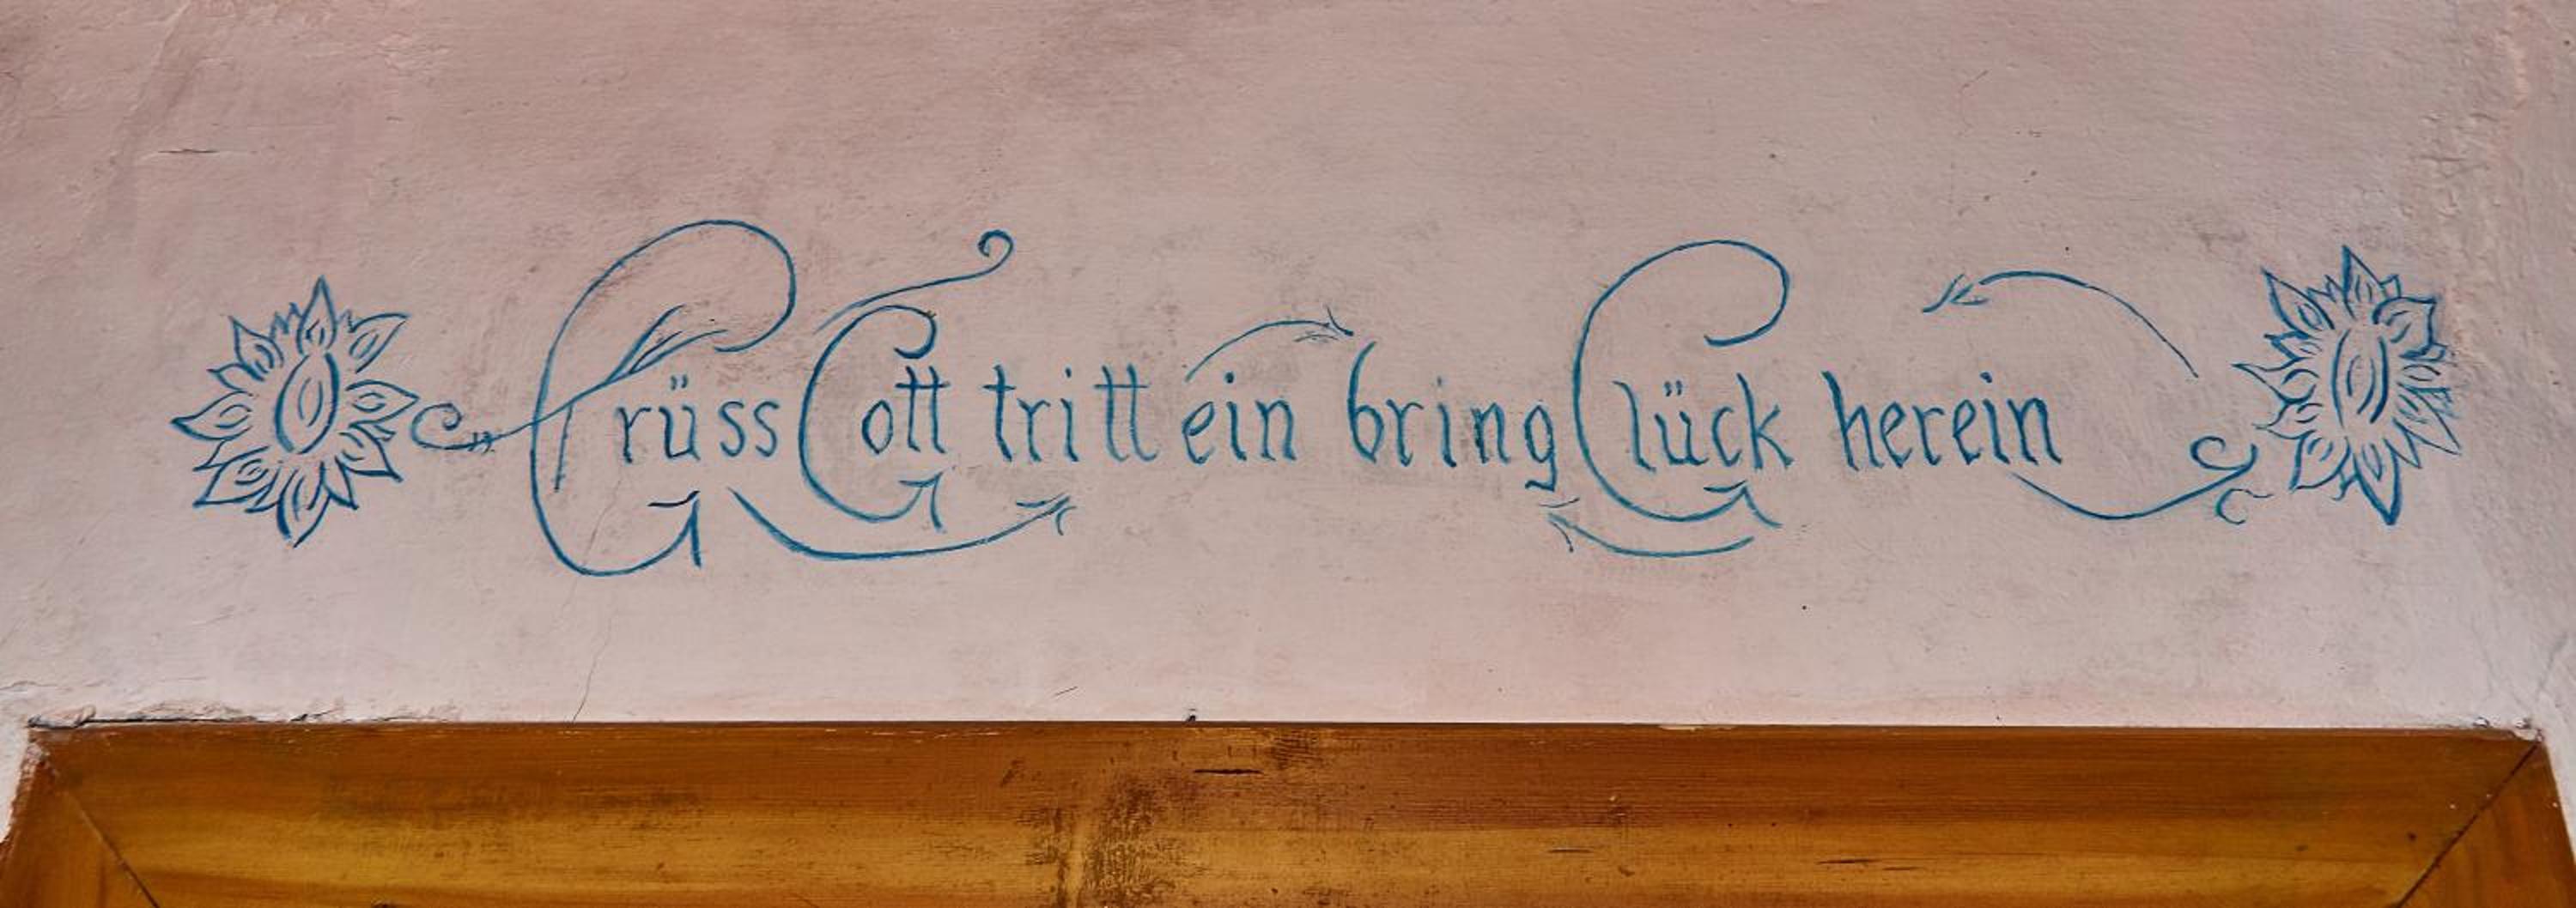 Grüss Gott tritt ein bring Glück herein